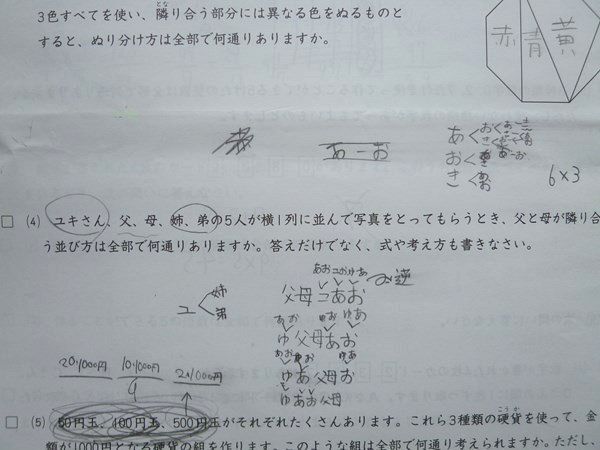 3色すべてを使い、隣り合う部分には異なる色をぬるものと
すると、ぬり分け方は全部で何通りありますか。
赤 青 黄
あーお
あ
お
き
6×3
(4) ユキさん、父、母、姉、弟の5人が横1列に並んで写真をとってもらうとき、父と母が隣り合
う並び方は全部で何通りありますか。答えだけでなく、式や考え方も書きなさい。
ユ 姉 弟
逆
父母ユあお
あお ゆお ゆあ
ゆ父母あお
ゆあ父母お
ゆあお父母
20:1000円 10:1000円 2:1000円
(5) 50円玉、100円玉、500円玉がそれぞれたくさんあります。これら3種類の硬貨を使って、金
額が1000円となる硬貨の組を作ります。このような組は全部で何通り考えられますか。ただし、